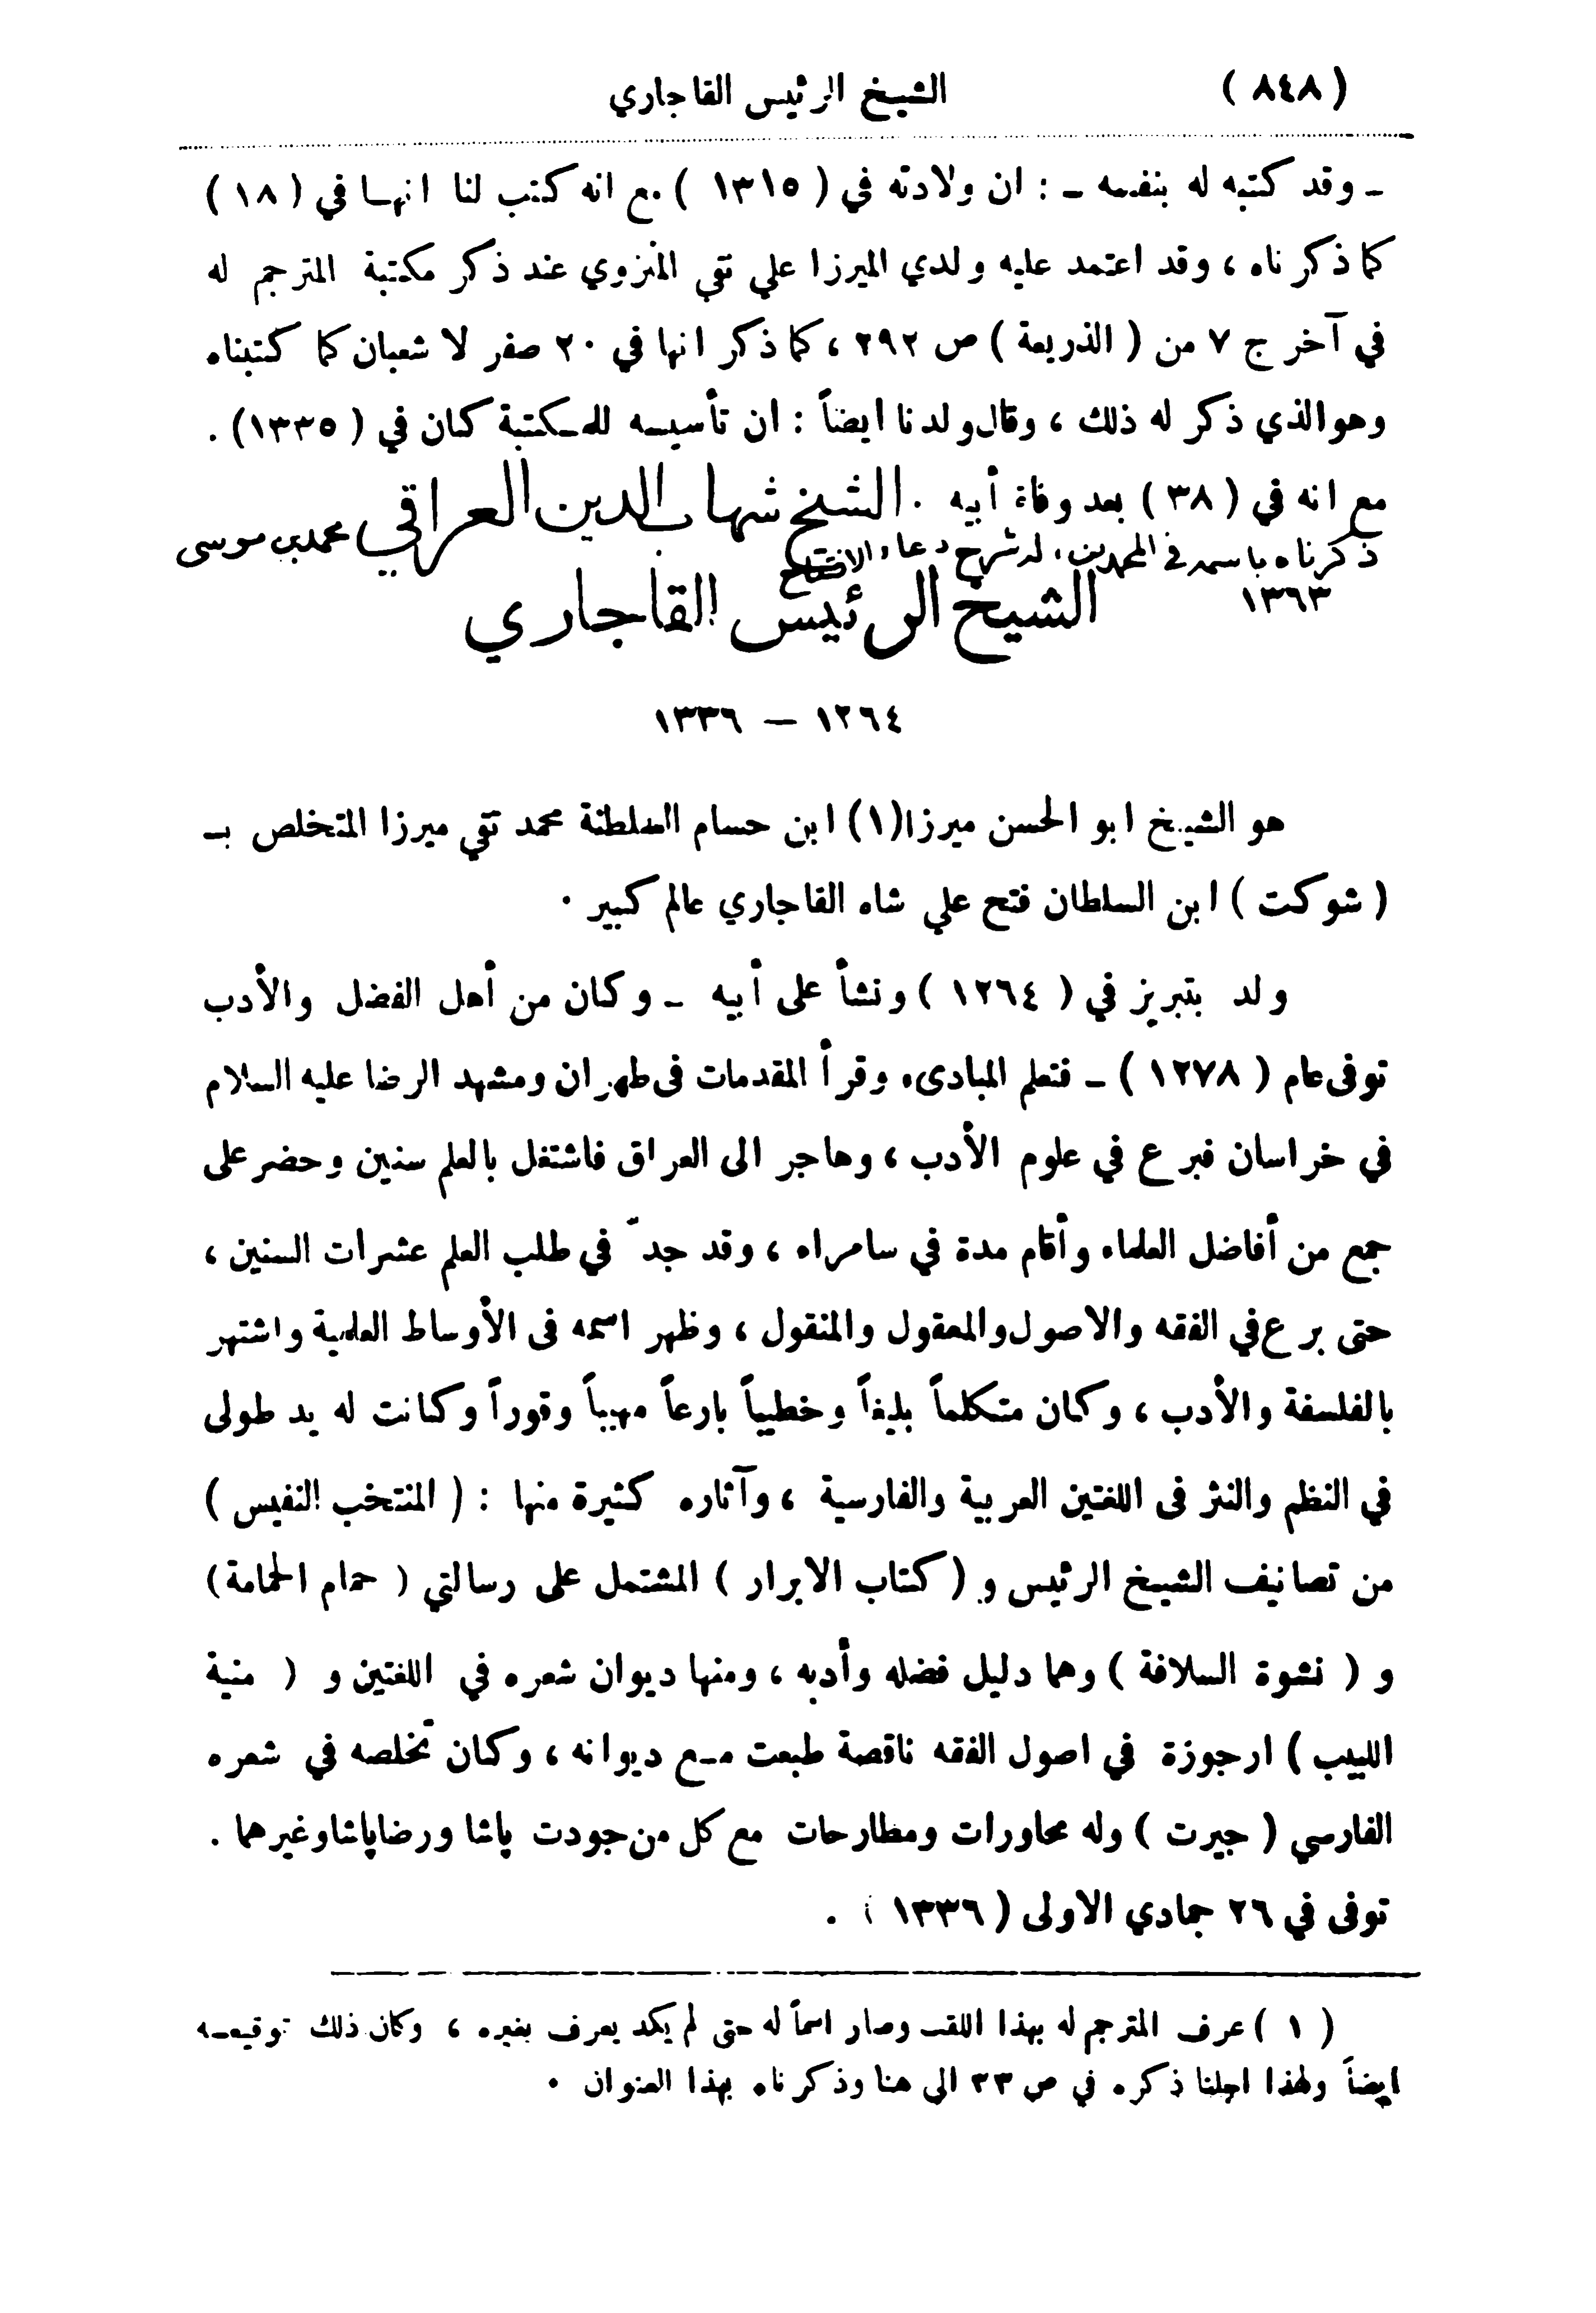 ( ٨٤٨ ) الشيخ الرئيس القاجاري
ـ وقد كتبه له بنفسه ـ : ان ولادته في ( ١٣١٥ ) مع انه كتب لنا انها في ( ١٨ )
كما ذكرناه ، وقد اعتمد عليه ولدي الميرزا علي نقي المنزوي عند ذكر مكتبة المترجم له
في آخر ج ٧ من ( الذريعة ) ص ٢٩٢ ، كما ذكر انها في ٢٠ صفر لا شعبان كما كتبناه
وهو الذي ذكر له ذلك ، وقال ولدنا ايضاً : ان تأسيسه للمكتبة كان في ( ١٣٣٥ ) .
مع انه في ( ٣٨ ) بعد وفاة أبيه . الشيخ شهاب الدين العراقي محمد بن موسى
ذكرناه باسمه في المحمدين ، له شرح دعاء الافتتاح
١٣٦٣
الشيخ الرئيس القاجاري
١٢٦٤ – ١٣٣٦
هو الشيخ ابو الحسن ميرزا(١) ابن حسام السلطنة محمد تقي ميرزا المتخلص بـ
( شوكت ) ابن السلطان فتح علي شاه القاجاري عالم كبير .
ولد بتبريز في ( ١٢٦٤ ) ونشأ على أبيه ـ وكان من أهل الفضل والأدب
توفى عام ( ١٢٧٨ ) ـ فتعلم المبادىء وقرأ المقدمات فى طهران ومشهد الرضا عليه السلام
في خراسان فبرع في علوم الأدب ، وهاجر الى العراق فاشتغل بالعلم سنين وحضر على
جمع من أفاضل العلماء وأقام مدة في سامراء ، وقد جدّ في طلب العلم عشرات السنين ،
حتى برع في الفقه والاصول والمعقول والمنقول ، وظهر اسمه فى الأوساط العلمية واشتهر
بالفلسفة والأدب ، وكان متكلماً بليغاً وخطيباً بارعاً مهيباً وقوراً وكانت له يد طولى
في النظم والنثر فى اللغتين العربية والفارسية ، وآثاره كثيرة منها : ( المنتخب النفيس )
من تصانيف الشيخ الرئيس و ( كتاب الابرار ) المشتمل على رسالتي ( حمام الحمامة )
و ( نشوة السلافة ) وهما دليل فضله وأدبه ، ومنها ديوان شعره في اللغتين و ( منية
اللبيب ) ارجوزة في اصول الفقه ناقصة طبعت مـع ديوانه ، وكان تخلصه في شعره
الفارسي ( حيرت ) وله محاورات ومطارحات مع كل من جودت پاشا ورضا پاشا وغيرهما .
توفى في ٢٦ جمادي الاولى ( ١٣٣٦ ) .
( ١ ) عرف المترجم له بهذا اللقب وصار اسماً له حتى لم يكد يعرف بغيره ، وكان ذلك توقيعـه
ايضاً ولهذا اجلنا ذكره في ص ٣٣ الى هنا وذكرناه بهذا العنوان .